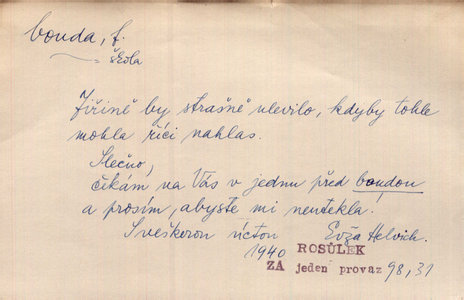 bouda, f.
škola
Jiřině by strašně ulevilo, kdyby tohle
mohla říci nahlas.
Slečno,
čekám na Vás v jednu před boudou
a prosím, abyste mi neutekla!
S veškerou úctou Evža Helvich.
1940 ROSŮLEK
ZA jeden provaz 98, 31